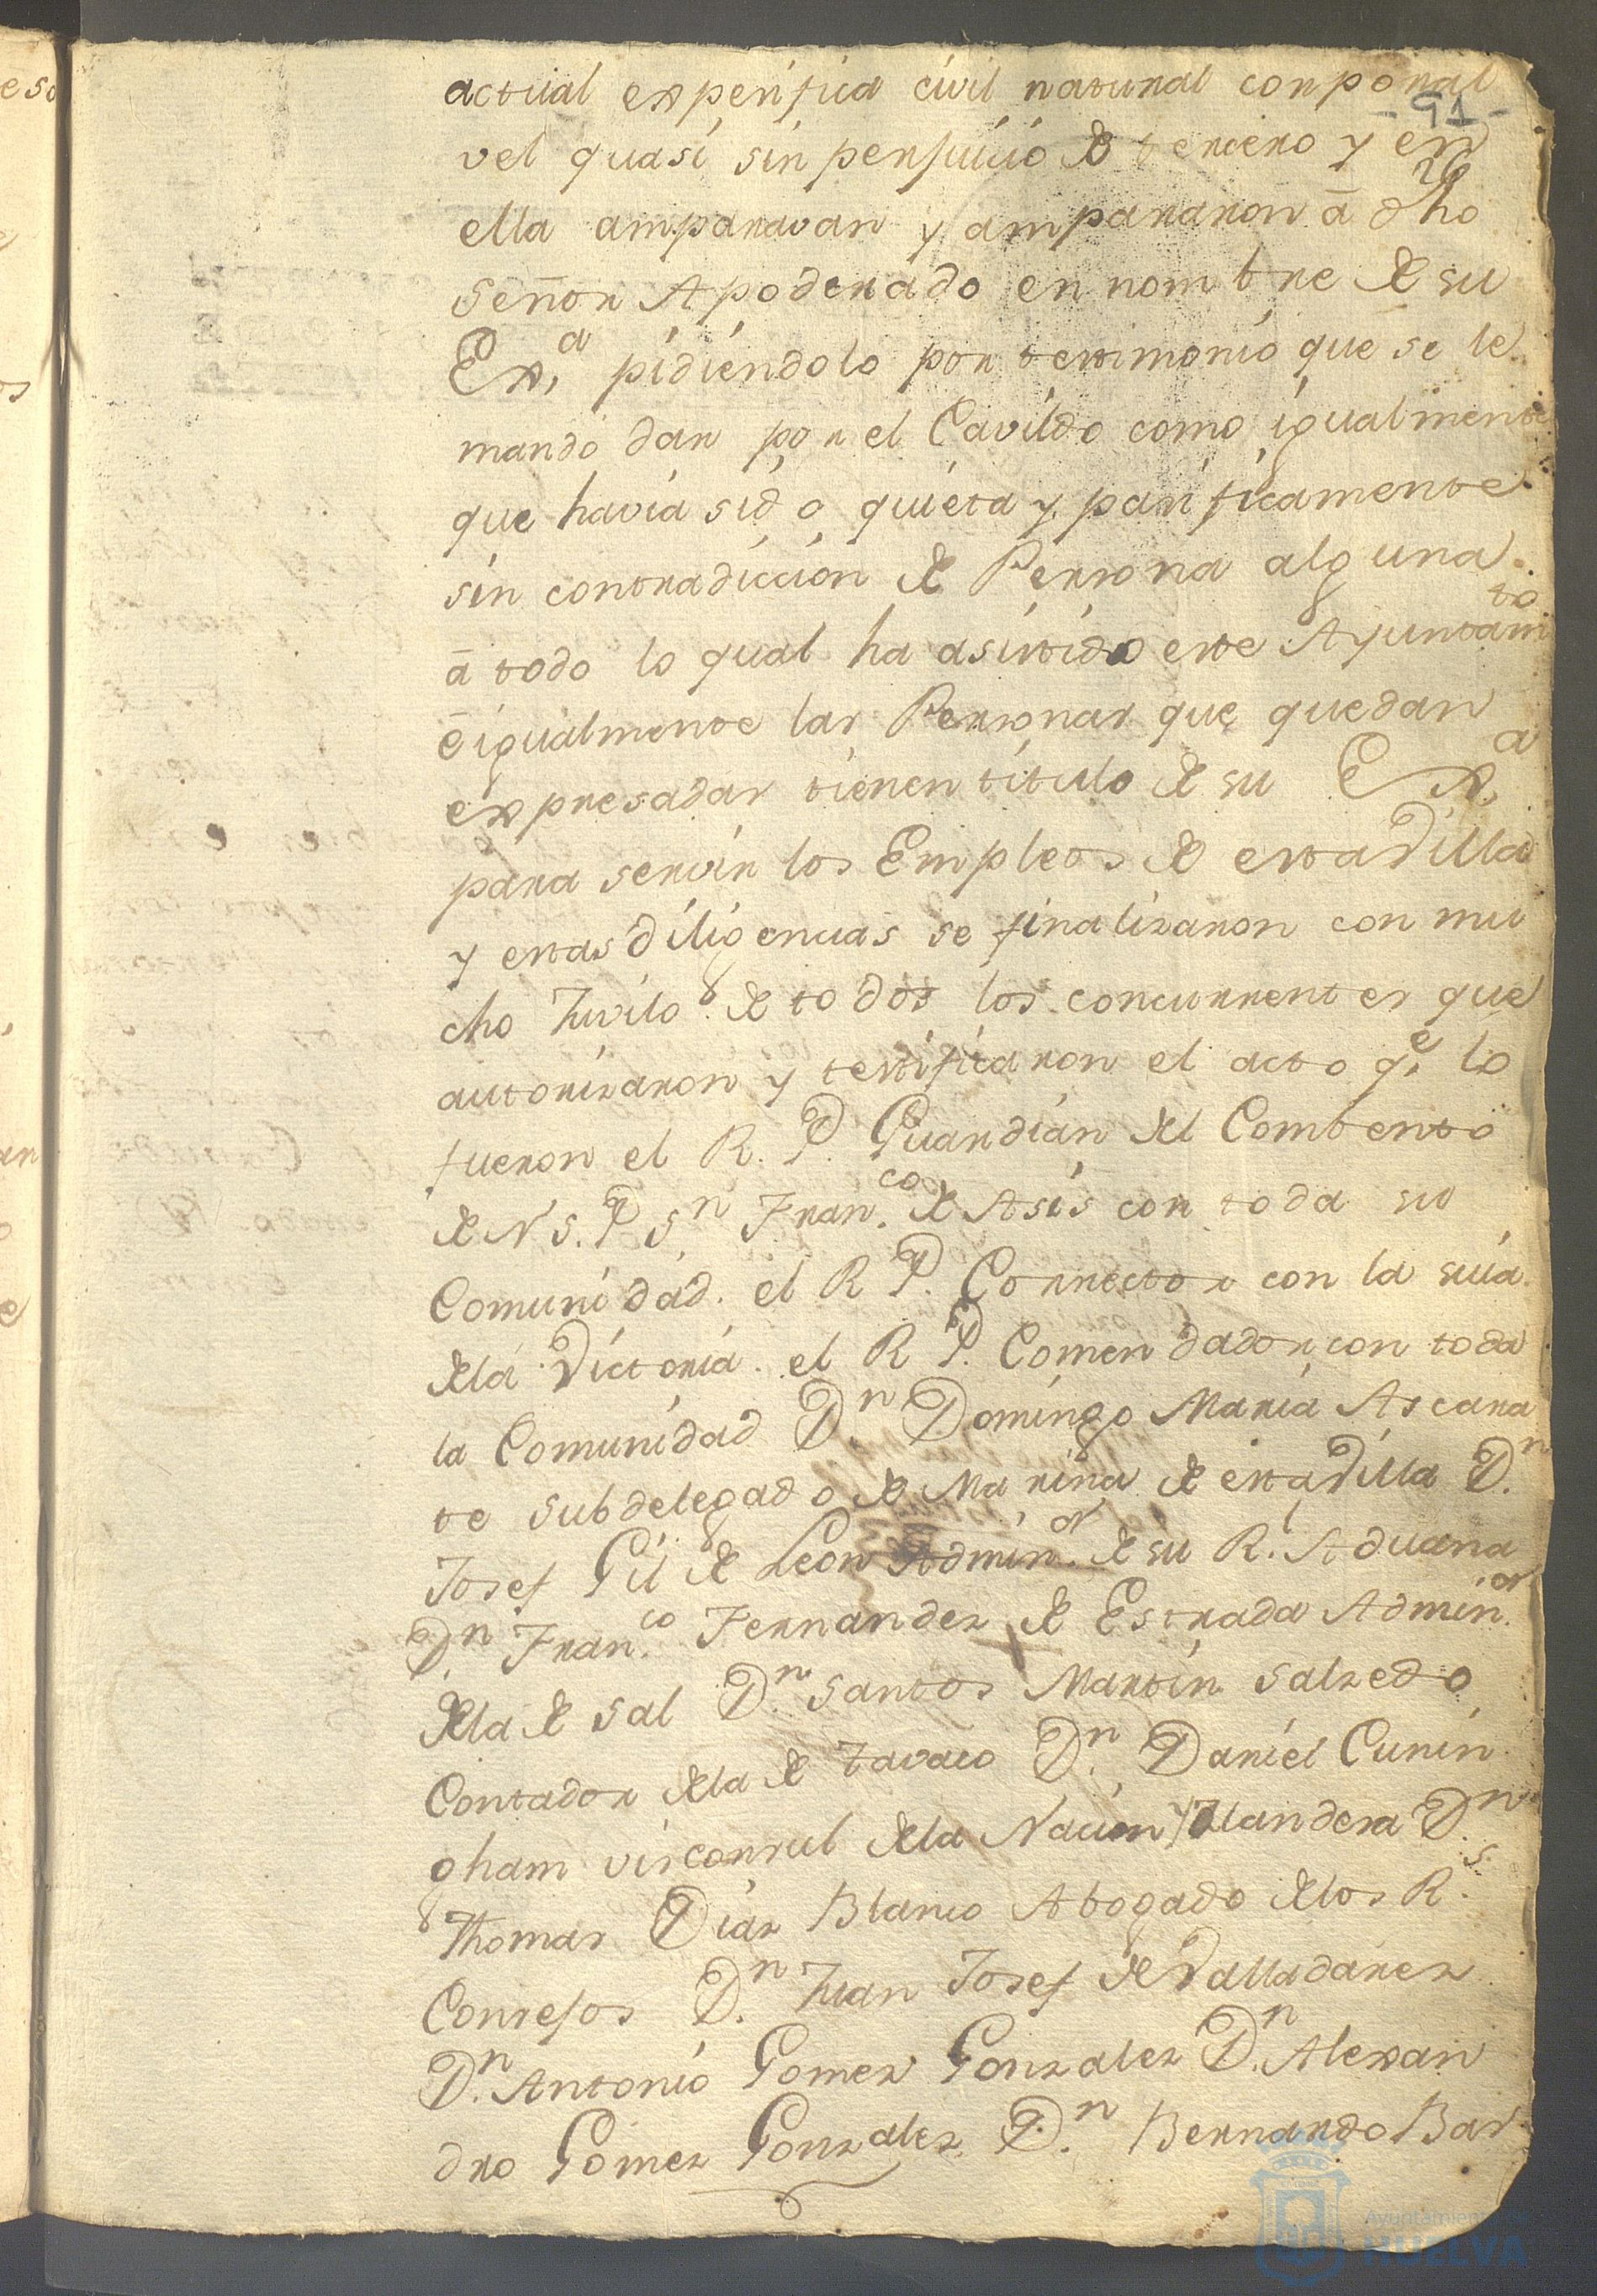 actual expecifica civil natural corporal
- 91 -
vel quasi sin perjuicio de tercero y en
ella amparavan y ampararon â dho
señor Apoderado en nombre de su
Ex.ª pidiendolo por testimonio que se le
mandó dar por el Cavildo como igualmente
que havia sido quieta y pacificamente
sin contradiccion de Persona alguna
â todo lo qual ha asistido este Ayuntam.to
ê igualmente las Personas que quedan
expresadas tienen titulo de su Ex.ª
para servir los Empleos de esta Villa
y estas diligencias se finalizaron con mu
cho Juvilo de todos los concurrentes que
autorizaron y testificaron el acto q.e lo
fueron el R. P. Guardian del Combento
de N S. P. S.n Fran.co de Asis con toda su
Comunidad. el R P. Corrector con la suia
de la Victoria. el R P. Comendador con toda
la Comunidad D.n Domingo Maria Ascara
te subdelegado de Marina de esta Villa D.n
Josef Gil de Leon Admin.or de su R.l Aduana
D.n Fran.co Fernandez de Estrada Admin.or
de la de sal D.n Santos Martin Salzedo
Contador de la de Tavaco D.n Daniel Cunin
gham visconsul de la Nacion Ylandesa D.n
Thomas Diaz Blanco Abogado de los R.s
Consejos D.n Juan Josef de Valladarez
D.n Antonio Gomez Gonzalez D.n Alexan
dro Gomez Gonzalez D.n Bernardo Bar
Ayuntamiento de
HUELVA